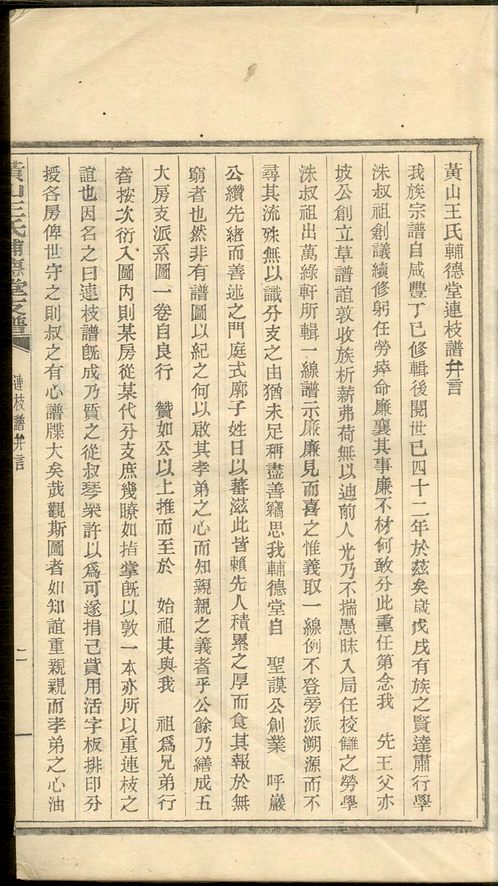 黃山王氏輔德堂連枝譜弁言
我族宗譜自咸豐丁巳修輯後閱世已四十二年於茲矣歲戊戌有族之賢達肅行學
洙叔祖創議續修躬任勞瘁命廉襄其事廉不材何敢分此重任第念我　先王父亦
坡公創立草譜誼敦收族析薪弗荷無以迪前人光乃不揣愚昧入局任校讎之勞學
洙叔祖出萬綠軒所輯一線譜示廉廉見而喜之惟義取一線例不登旁派溯源而不
尋其流殊無以識分支之由猶未足稱盡善竊思我輔德堂自　聖謨公創業　呼巖
公纘先緒而善述之門庭式廓子姓日以蕃滋此皆賴先人積累之厚而食其報於無
窮者也然非有譜圖以紀之何以啟其孝弟之心而知親親之義者乎公餘乃繕成五
大房支派系圖一卷自良行　贊如公以上推而至於　始祖其與我　祖爲兄弟行
者按次衍入圖內則某房從某代分支庶幾瞭如指掌既以敦一本亦所以重連枝之
誼也因名之曰連枝譜既成乃質之從叔琴榮許以爲可遂捐己貲用活字板排印分
授各房俾世守之則叔之有心譜牒大矣哉觀斯圖者如知誼重親親而孝弟之心油
黃山王氏輔德堂支譜
連枝譜弁言
二